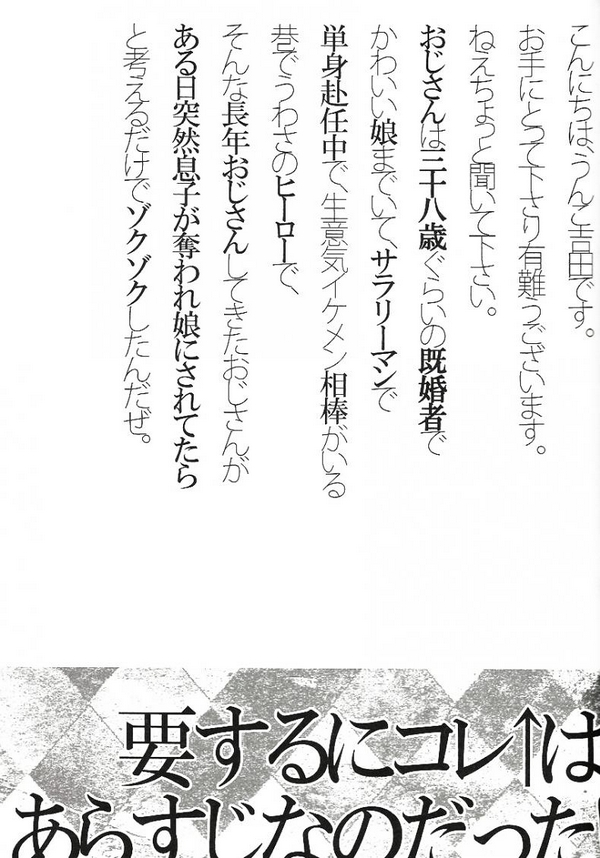 こんにちは、うんこ吉田です。
お手にとって下さり有難うございます。
ねえちょっと聞いて下さい。
おじさんは三十八歳ぐらいの既婚者で
かわいい娘までいて、サラリーマンで
単身赴任中で、生意気イケメン相棒がいる
巷でうわさのヒーローで、
そんな長年おじさんしてきたおじさんが
ある日突然息子が奪われ娘にされてたら
と考えるだけでゾクゾクしたんだぜ。
要するにコレ↑は
あらすじなのだった!